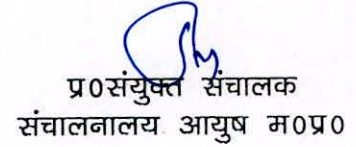 प्र०संयुक्त संचालक
संचालनालय आयुष म०प्र०